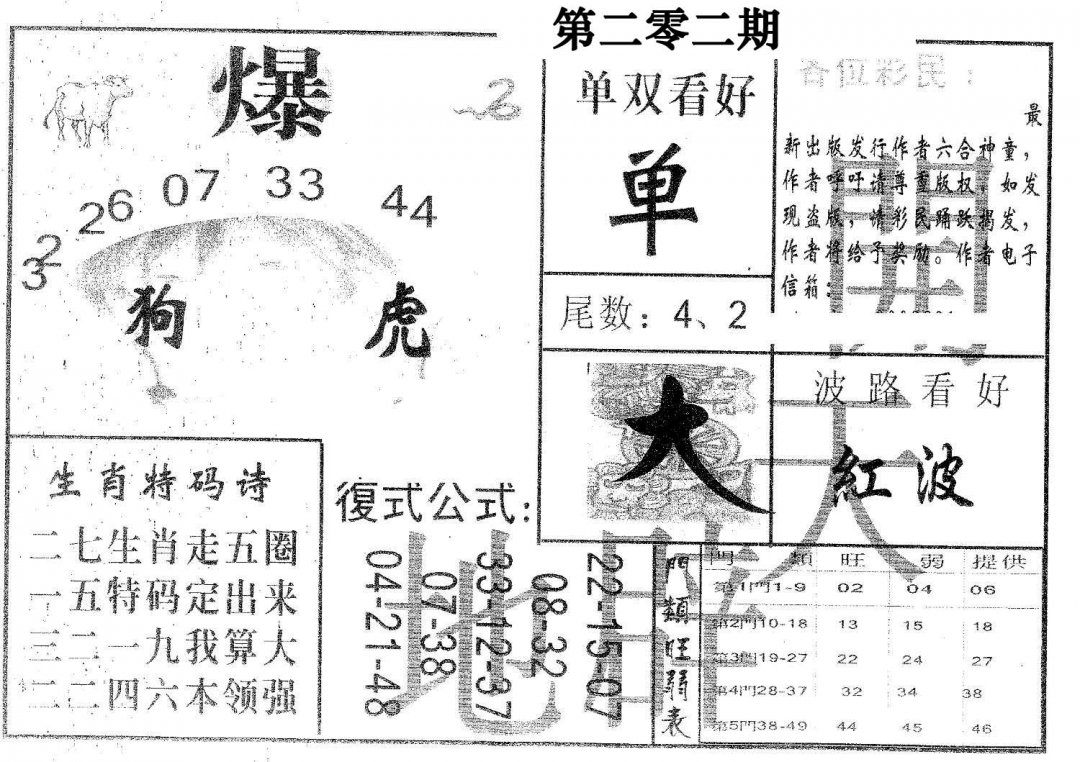 第二零二期
爆
32
26
07
33
44
狗
虎
单双看好
单
尾数：4、2
各位彩民：
最
新出版发行作者六合神童，
作者呼吁请尊重版权，如发
现盗版，情彩民踊跃揭发，
作者将给予奖励。作者电子
信箱：
大
波路看好
紅波
生肖特码诗
二七生肖走五圈
一五特码定出来
三二一九我算大
二二四六本领强
復式公式：
22-15-07
08-32
33-12-37
07-38
04-21-48
門類旺弱表
門 類 旺 弱 提供
第1門1-9 02 04 06
第2門10-18 13 15 18
第3門19-27 22 24 27
第4門28-37 32 34 38
第5門38-49 44 45 46